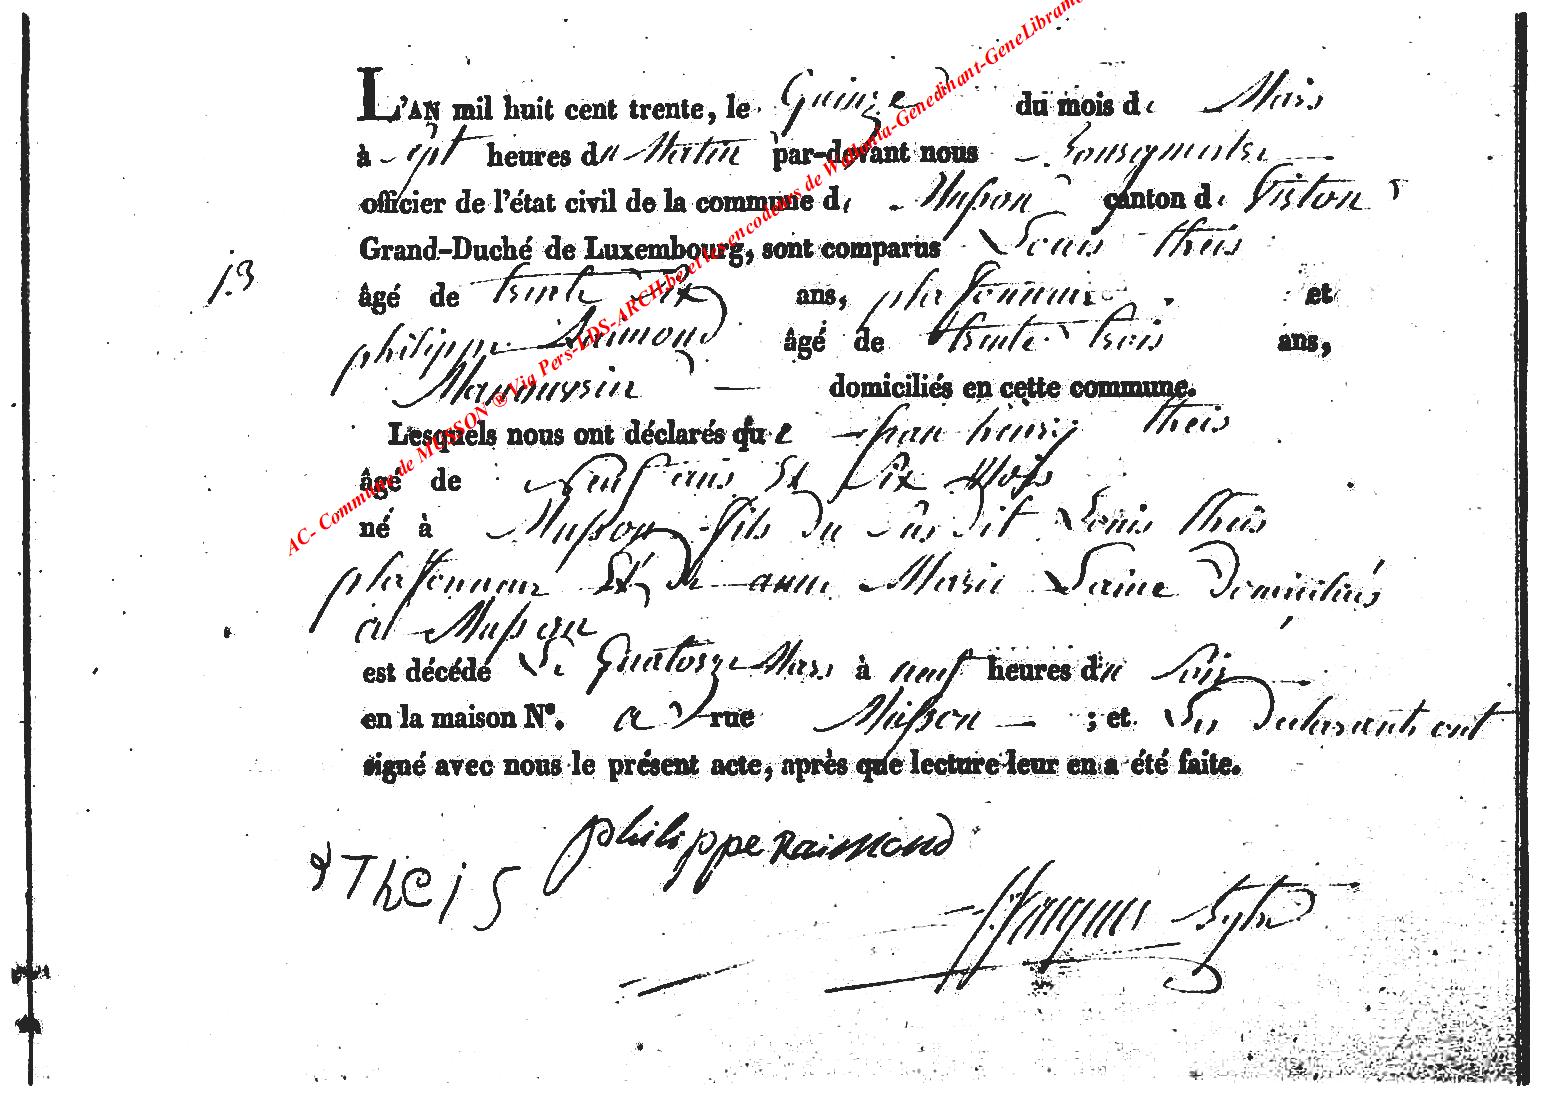 L'AN mil huit cent trente, le Quinze du mois de Mars
à sept heures du Matin par-devant nous Bourgmestre
officier de l'état civil de la commune de Musson canton de Virton
Grand-Duché de Luxembourg, sont comparus Louis theis
13
âgé de trente six ans, plafonneur et
philippe Raimond âgé de trente trois ans,
domiciliés en cette commune.
Lesquels nous ont déclarés que jean henry theis
âgé de Neuf ans Et Six Mois
né à Musson fils du Sus dit Louis theis
plafonneur Et de anne Marie Laine Domiciliés
à Musson
est décédé Le Quatorze Mars à neuf heures du Soir
en la maison N°. a rue Musson ; et Les Declarants ont
signé avec nous le présent acte, après que lecture leur en a été faite.
philippe Raimond
THeiS
Jacques
AC- Commune de MUSSON ® Via Pers-LDS-ARCH.be et les encodeurs de Wallonia-Genedinant-GeneLibramo